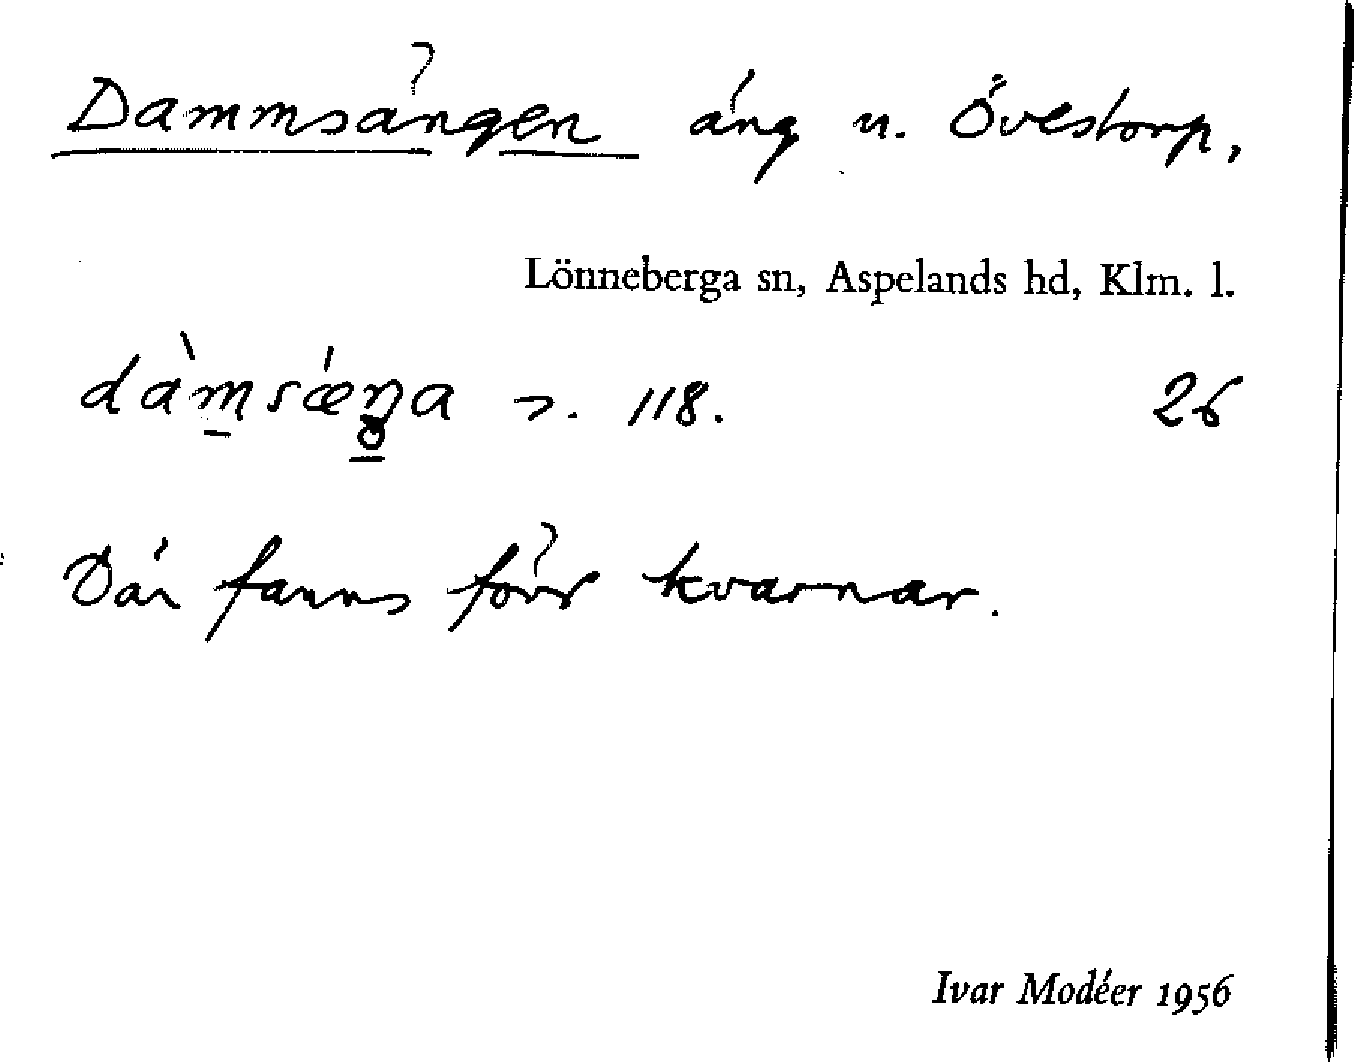 Dammsängen äng u. Övestorp,
Lönneberga sn, Aspelands hd, Klm. l.
dàmsǽŋa s. 118. 26
Där fanns förr kvarnar.
Ivar Modéer 1956